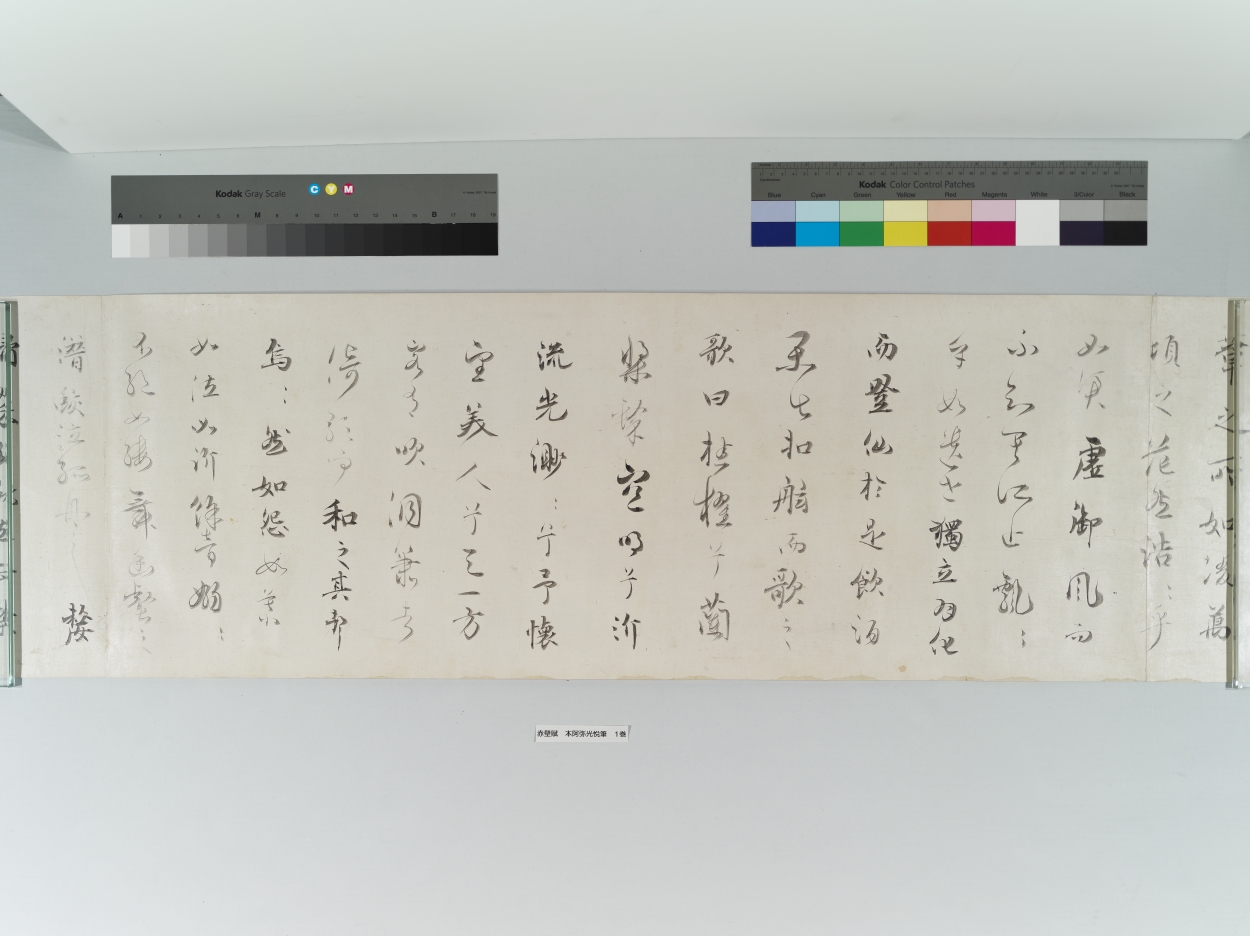 Kodak Gray Scale
C Y M
A 1 2 3 4 5 6 M 8 9 10 11 12 13 14 15 B 17 18 19
Kodak Color Control Patches
Blue Cyan Green Yellow Red Magenta White 3/Color Black
葦之所如凌萬
頃之茫然浩〻乎
如馮虚御風而
不知其所止飄〻
乎如遺世獨立羽化
而登仙於是飲酒
樂甚扣舷而歌之
歌曰桂櫂兮蘭
槳擊空明兮泝
流光渺〻兮予懷
望美人兮天一方
客有吹洞簫者
倚歌而和之其聲
烏〻然如怨如慕
如泣如訴餘音嫋〻
不絶如縷舞幽壑之
潜蛟泣孤舟之嫠
赤壁賦 本阿弥光悦筆 1巻